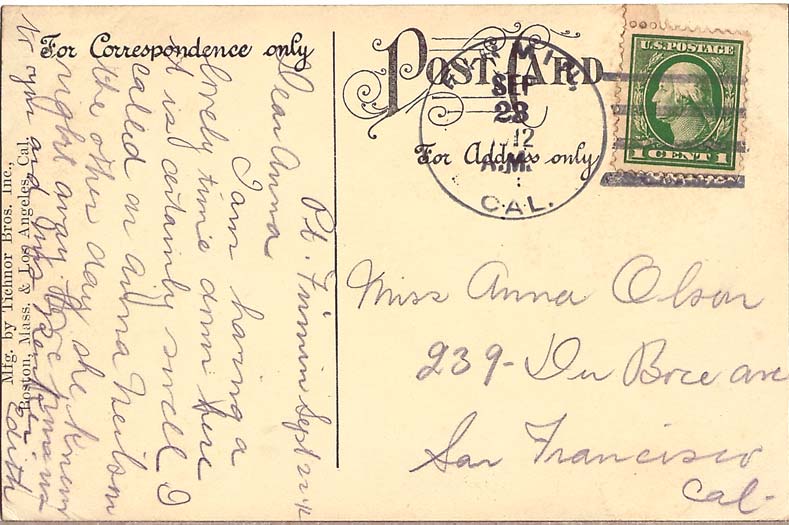 For Correspondence only
POST CARD
For Address only
SEP
23
12
A.M.
CAL.
U.S. POSTAGE
1 CENT 1
Pt. Firmin Sept 22
Dear Anna
I am having a
lovely time down here
it is certainly swell I
called on Anna Neilson
the other day she knew
me right away.
to you and
Edith
Miss Anna Olson
239- Du Boce ave
San Francisco
Cal-
Mfg. by Tichnor Bros. Inc.,
Boston, Mass. & Los Angeles, Cal.